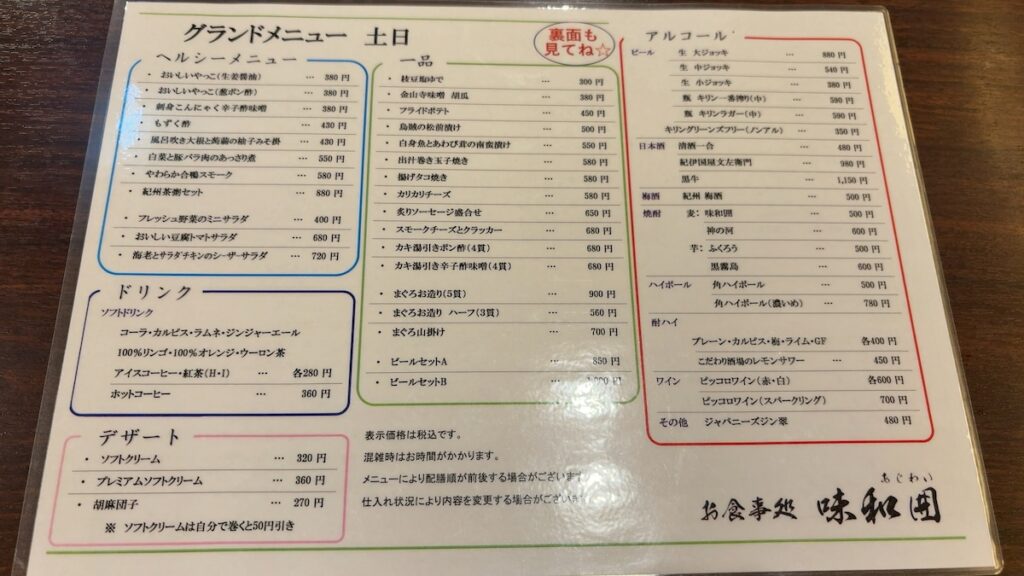 グランドメニュー 土日
裏面も
見てね☆
ヘルシーメニュー
・ おいしいやっこ(生姜醤油) … 380 円
・ おいしいやっこ(葱ポン酢) … 380 円
・ 刺身こんにゃく辛子酢味噌 … 380 円
・ もずく酢 … 430 円
・ 風呂吹き大根と蒟蒻の柚子みそ掛 … 430 円
・ 白菜と豚バラ肉のあっさり煮 … 550 円
・ やわらか合鴨スモーク … 580 円
・ 紀州茶粥セット … 880 円
・ フレッシュ野菜のミニサラダ … 400 円
・ おいしい豆腐トマトサラダ … 680 円
・ 海老とサラダチキンのシーザーサラダ … 720 円
ドリンク
ソフトドリンク
コーラ・カルピス・ラムネ・ジンジャーエール
100%リンゴ・100%オレンジ・ウーロン茶
アイスコーヒー・紅茶(H・I) … 各280 円
ホットコーヒー … 360 円
デザート
・ ソフトクリーム … 320 円
・ プレミアムソフトクリーム … 360 円
・ 胡麻団子 … 270 円
※ ソフトクリームは自分で巻くと50円引き
一品
・ 枝豆塩ゆで … 300 円
・ 金山寺味噌 胡瓜 … 380 円
・ フライドポテト … 450 円
・ 烏賊の松前漬け … 500 円
・ 白身魚とあわび茸の南蛮漬け … 550 円
・ 出汁巻き玉子焼き … 580 円
・ 揚げタコ焼き … 580 円
・ カリカリチーズ … 580 円
・ 炙りソーセージ盛合せ … 650 円
・ スモークチーズとクラッカー … 680 円
・ カキ湯引きポン酢(4貫) … 680 円
・ カキ湯引き辛子酢味噌(4貫) … 680 円
・ まぐろお造り(5貫) … 900 円
・ まぐろお造り ハーフ(3貫) … 560 円
・ まぐろ山掛け … 700 円
・ ビールセットA … 850 円
・ ビールセットB … 円
表示価格は税込です。
混雑時はお時間がかかります。
メニューにより配膳順が前後する場合がございます
仕入れ状況により内容を変更する場合がございます
アルコール
ビール 生 大ジョッキ … 880 円
生 中ジョッキ … 540 円
生 小ジョッキ … 380 円
瓶 キリン一番搾り(中) … 590 円
瓶 キリンラガー(中) … 590 円
キリングリーンズフリー(ノンアル) … 350 円
日本酒 清酒一合 … 480 円
紀伊国屋文左衛門 … 980 円
黒牛 … 1,150 円
梅酒 紀州 梅酒 … 500 円
焼酎 麦: 味和囲 … 500 円
神の河 … 600 円
芋: ふくろう … 500 円
黒霧島 … 600 円
ハイボール 角ハイボール … 500 円
角ハイボール(濃いめ) … 780 円
酎ハイ
プレーン・カルピス・梅・ライム・GF 各400 円
こだわり酒場のレモンサワー … 450 円
ワイン ピッコロワイン(赤・白) 各600 円
ピッコロワイン(スパークリング) 700 円
その他 ジャパニーズジン翠 480 円
あじわい
お食事処 味和囲